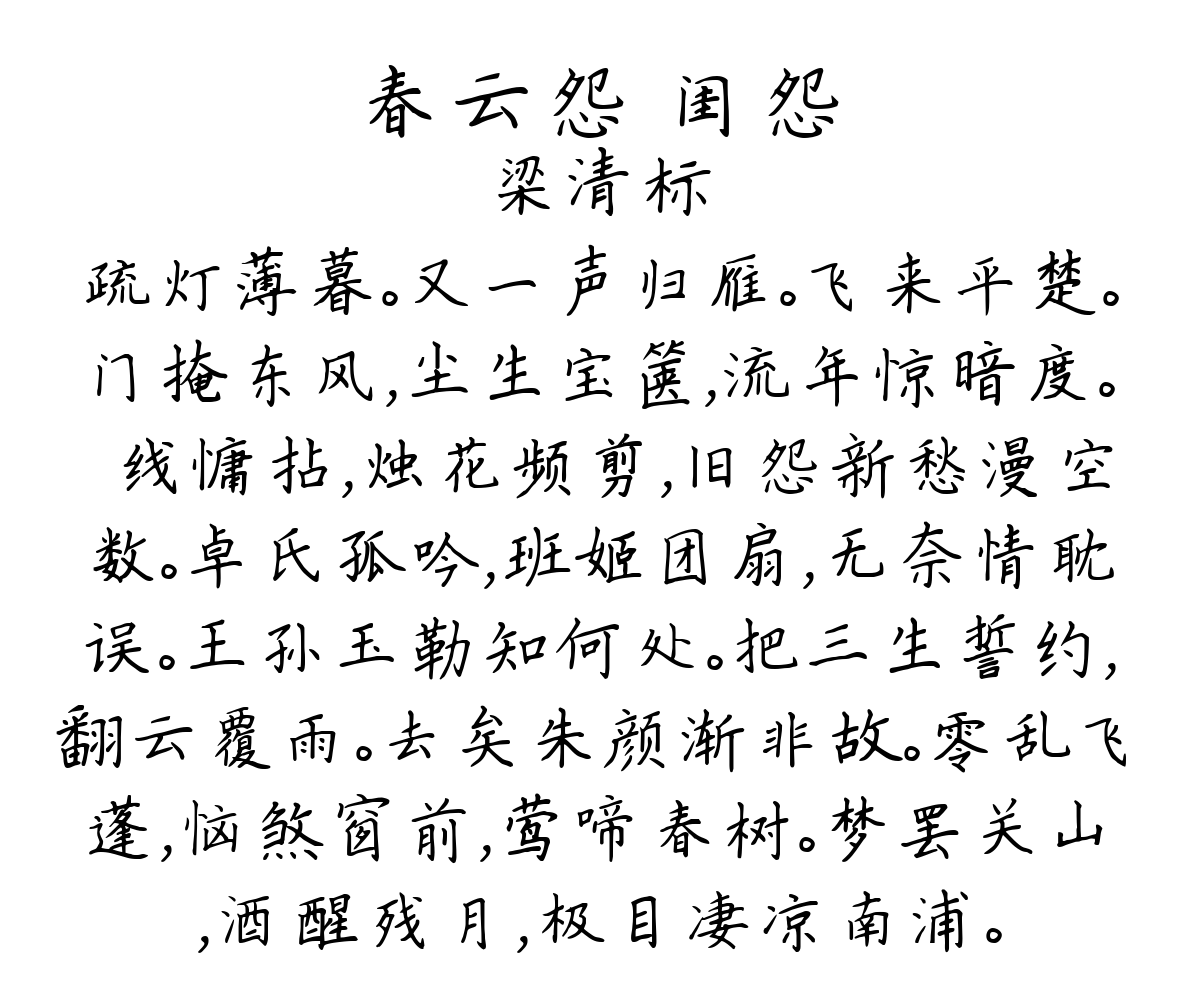 春云怨 闺怨
梁清标
疏灯薄暮。又一声归雁。飞来平楚。
门掩东风,尘生宝箧,流年惊暗度。
线慵拈,烛花频剪,旧怨新愁漫空
数。卓氏孤吟,班姬团扇,无奈情耽
误。王孙玉勒知何处。把三生誓约,
翻云覆雨。去矣朱颜渐非故。零乱飞
蓬,恼煞窗前,莺啼春树。梦罢关山
,酒醒残月,极目凄凉南浦。